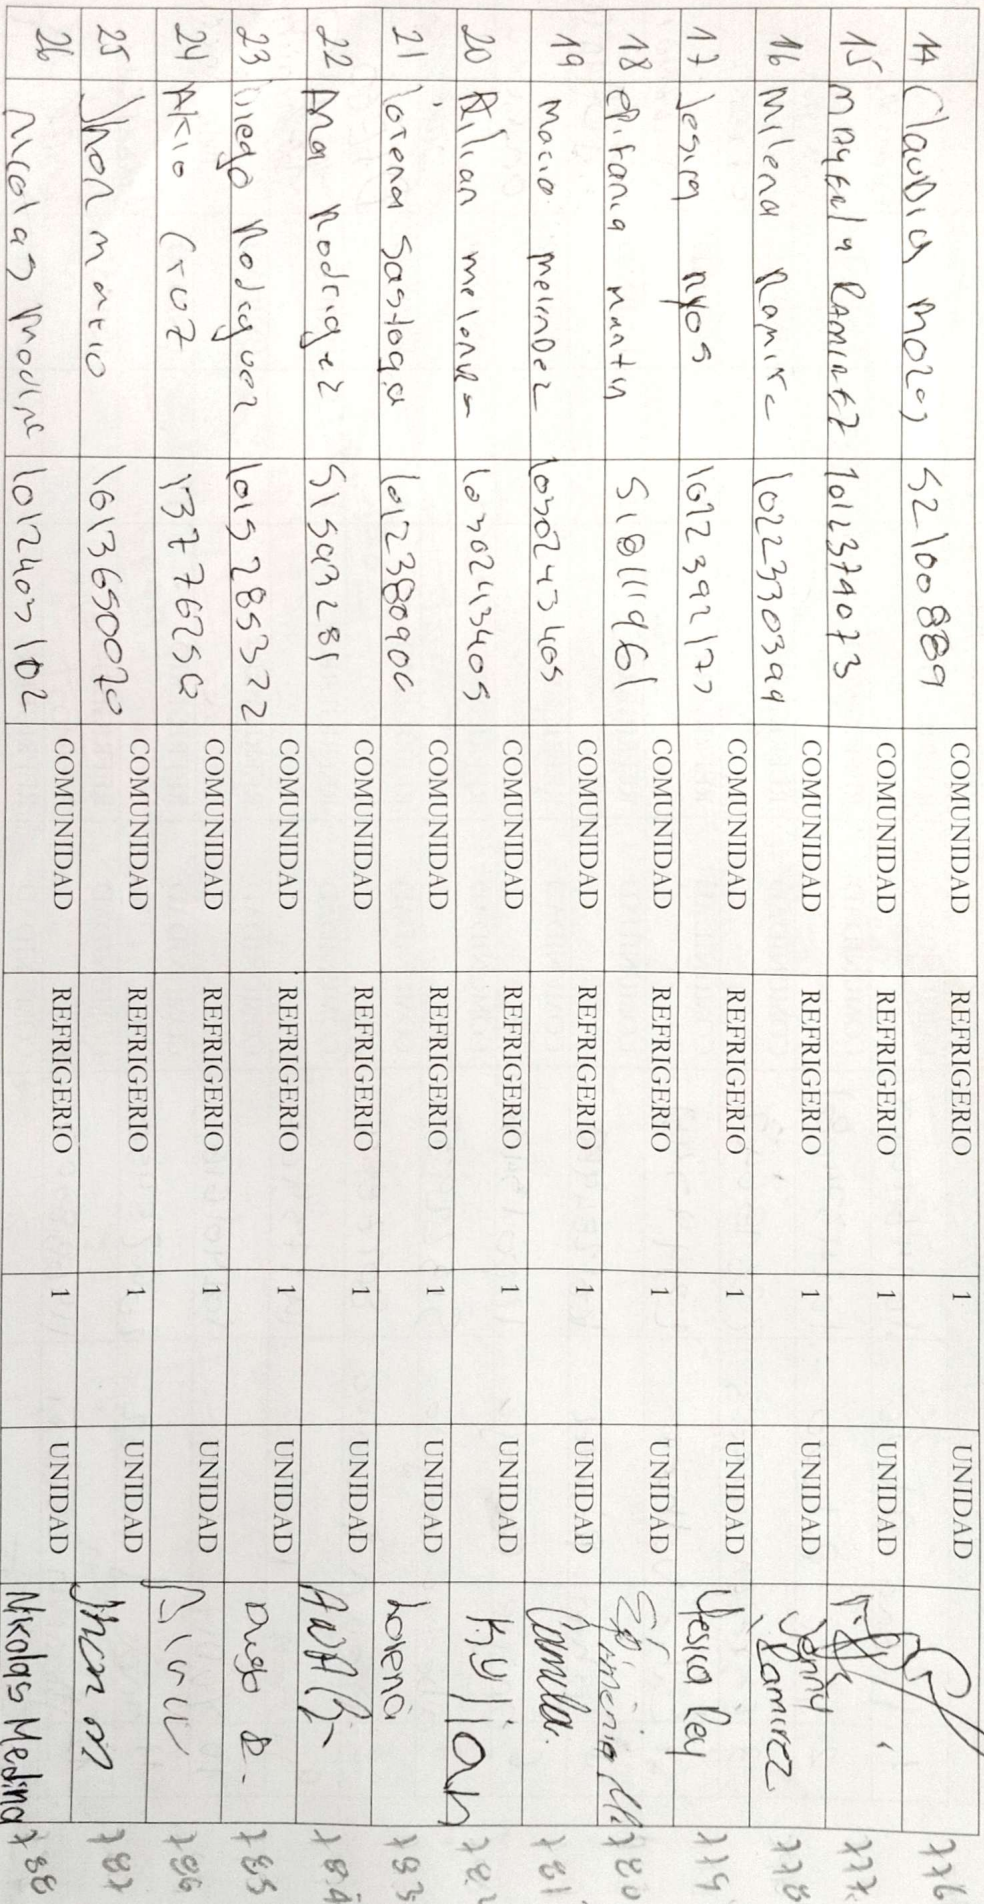 14 Claudia Mozo 52100889 COMUNIDAD REFRIGERIO 1 UNIDAD 776
15 MAyERly RAMIREZ 1012379073 COMUNIDAD REFRIGERIO 1 UNIDAD 777
16 Milena Ramirc 1022330399 COMUNIDAD REFRIGERIO 1 UNIDAD Jenny Ramirez 778
17 Jesica 1012392177 COMUNIDAD REFRIGERIO 1 UNIDAD Yesica Rey 779
18 epifania COMUNIDAD REFRIGERIO 1 UNIDAD 780
19 maria melendez 1030243405 COMUNIDAD REFRIGERIO 1 UNIDAD Camila. 781
20 1030243405 COMUNIDAD REFRIGERIO 1 UNIDAD Kylian 782
21 lorena Sastoqa 1012380906 COMUNIDAD REFRIGERIO 1 UNIDAD Lorena 783
22 Ana Rodrigez 51593281 COMUNIDAD REFRIGERIO 1 UNIDAD 784
23 Diego Rodriguez 1015285322 COMUNIDAD REFRIGERIO 1 UNIDAD Diego R. 785
24 Cruz 13776256 COMUNIDAD REFRIGERIO 1 UNIDAD 786
25 Jhon mario 1013650070 COMUNIDAD REFRIGERIO 1 UNIDAD Jhon m 787
26 Nicolas 1012403102 COMUNIDAD REFRIGERIO 1 UNIDAD Nikolas Medina 788